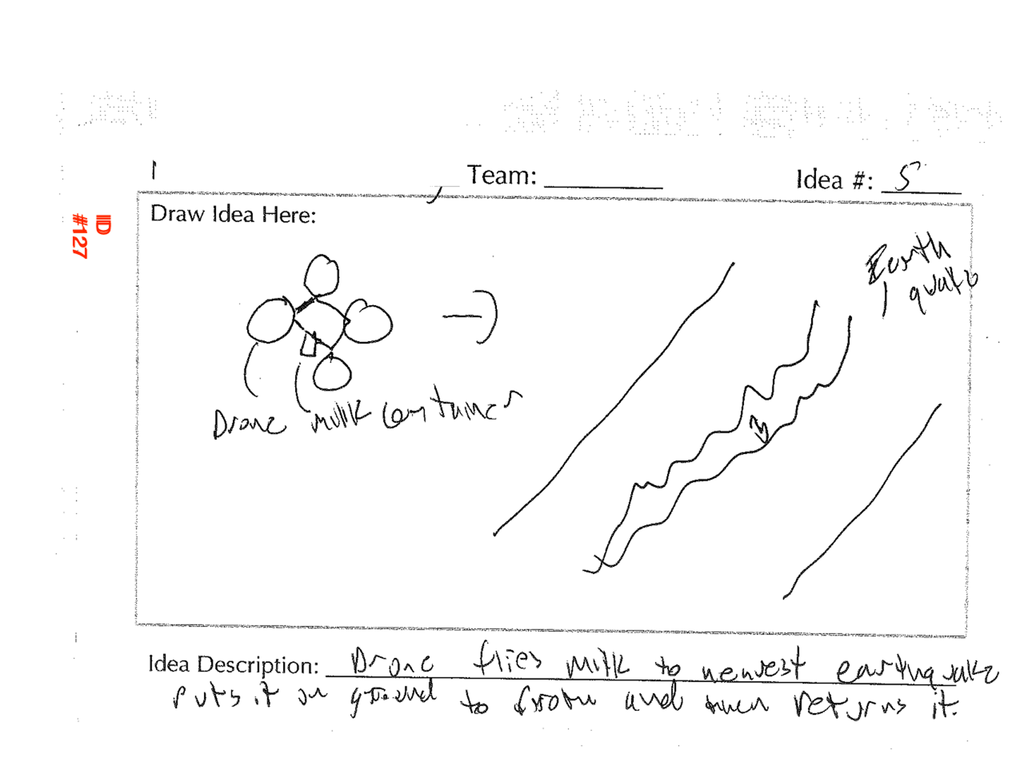 1 Team: Idea #: 5
Draw Idea Here:
IID
#127
Earth
quake
Drone milk container
Idea Description: Drone flies milk to newest earthquake
puts it on ground to froth and then returns it.